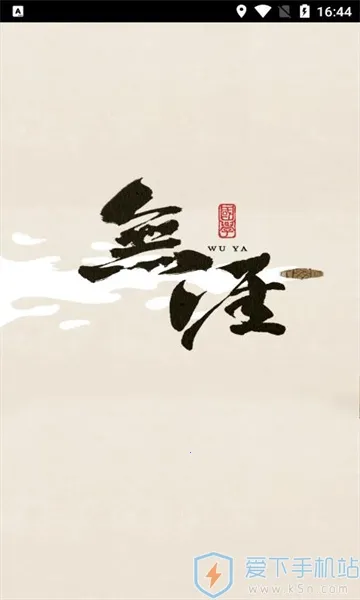 16:44
無涯
國學
WU YA
爱下手机站
www.k5n.com